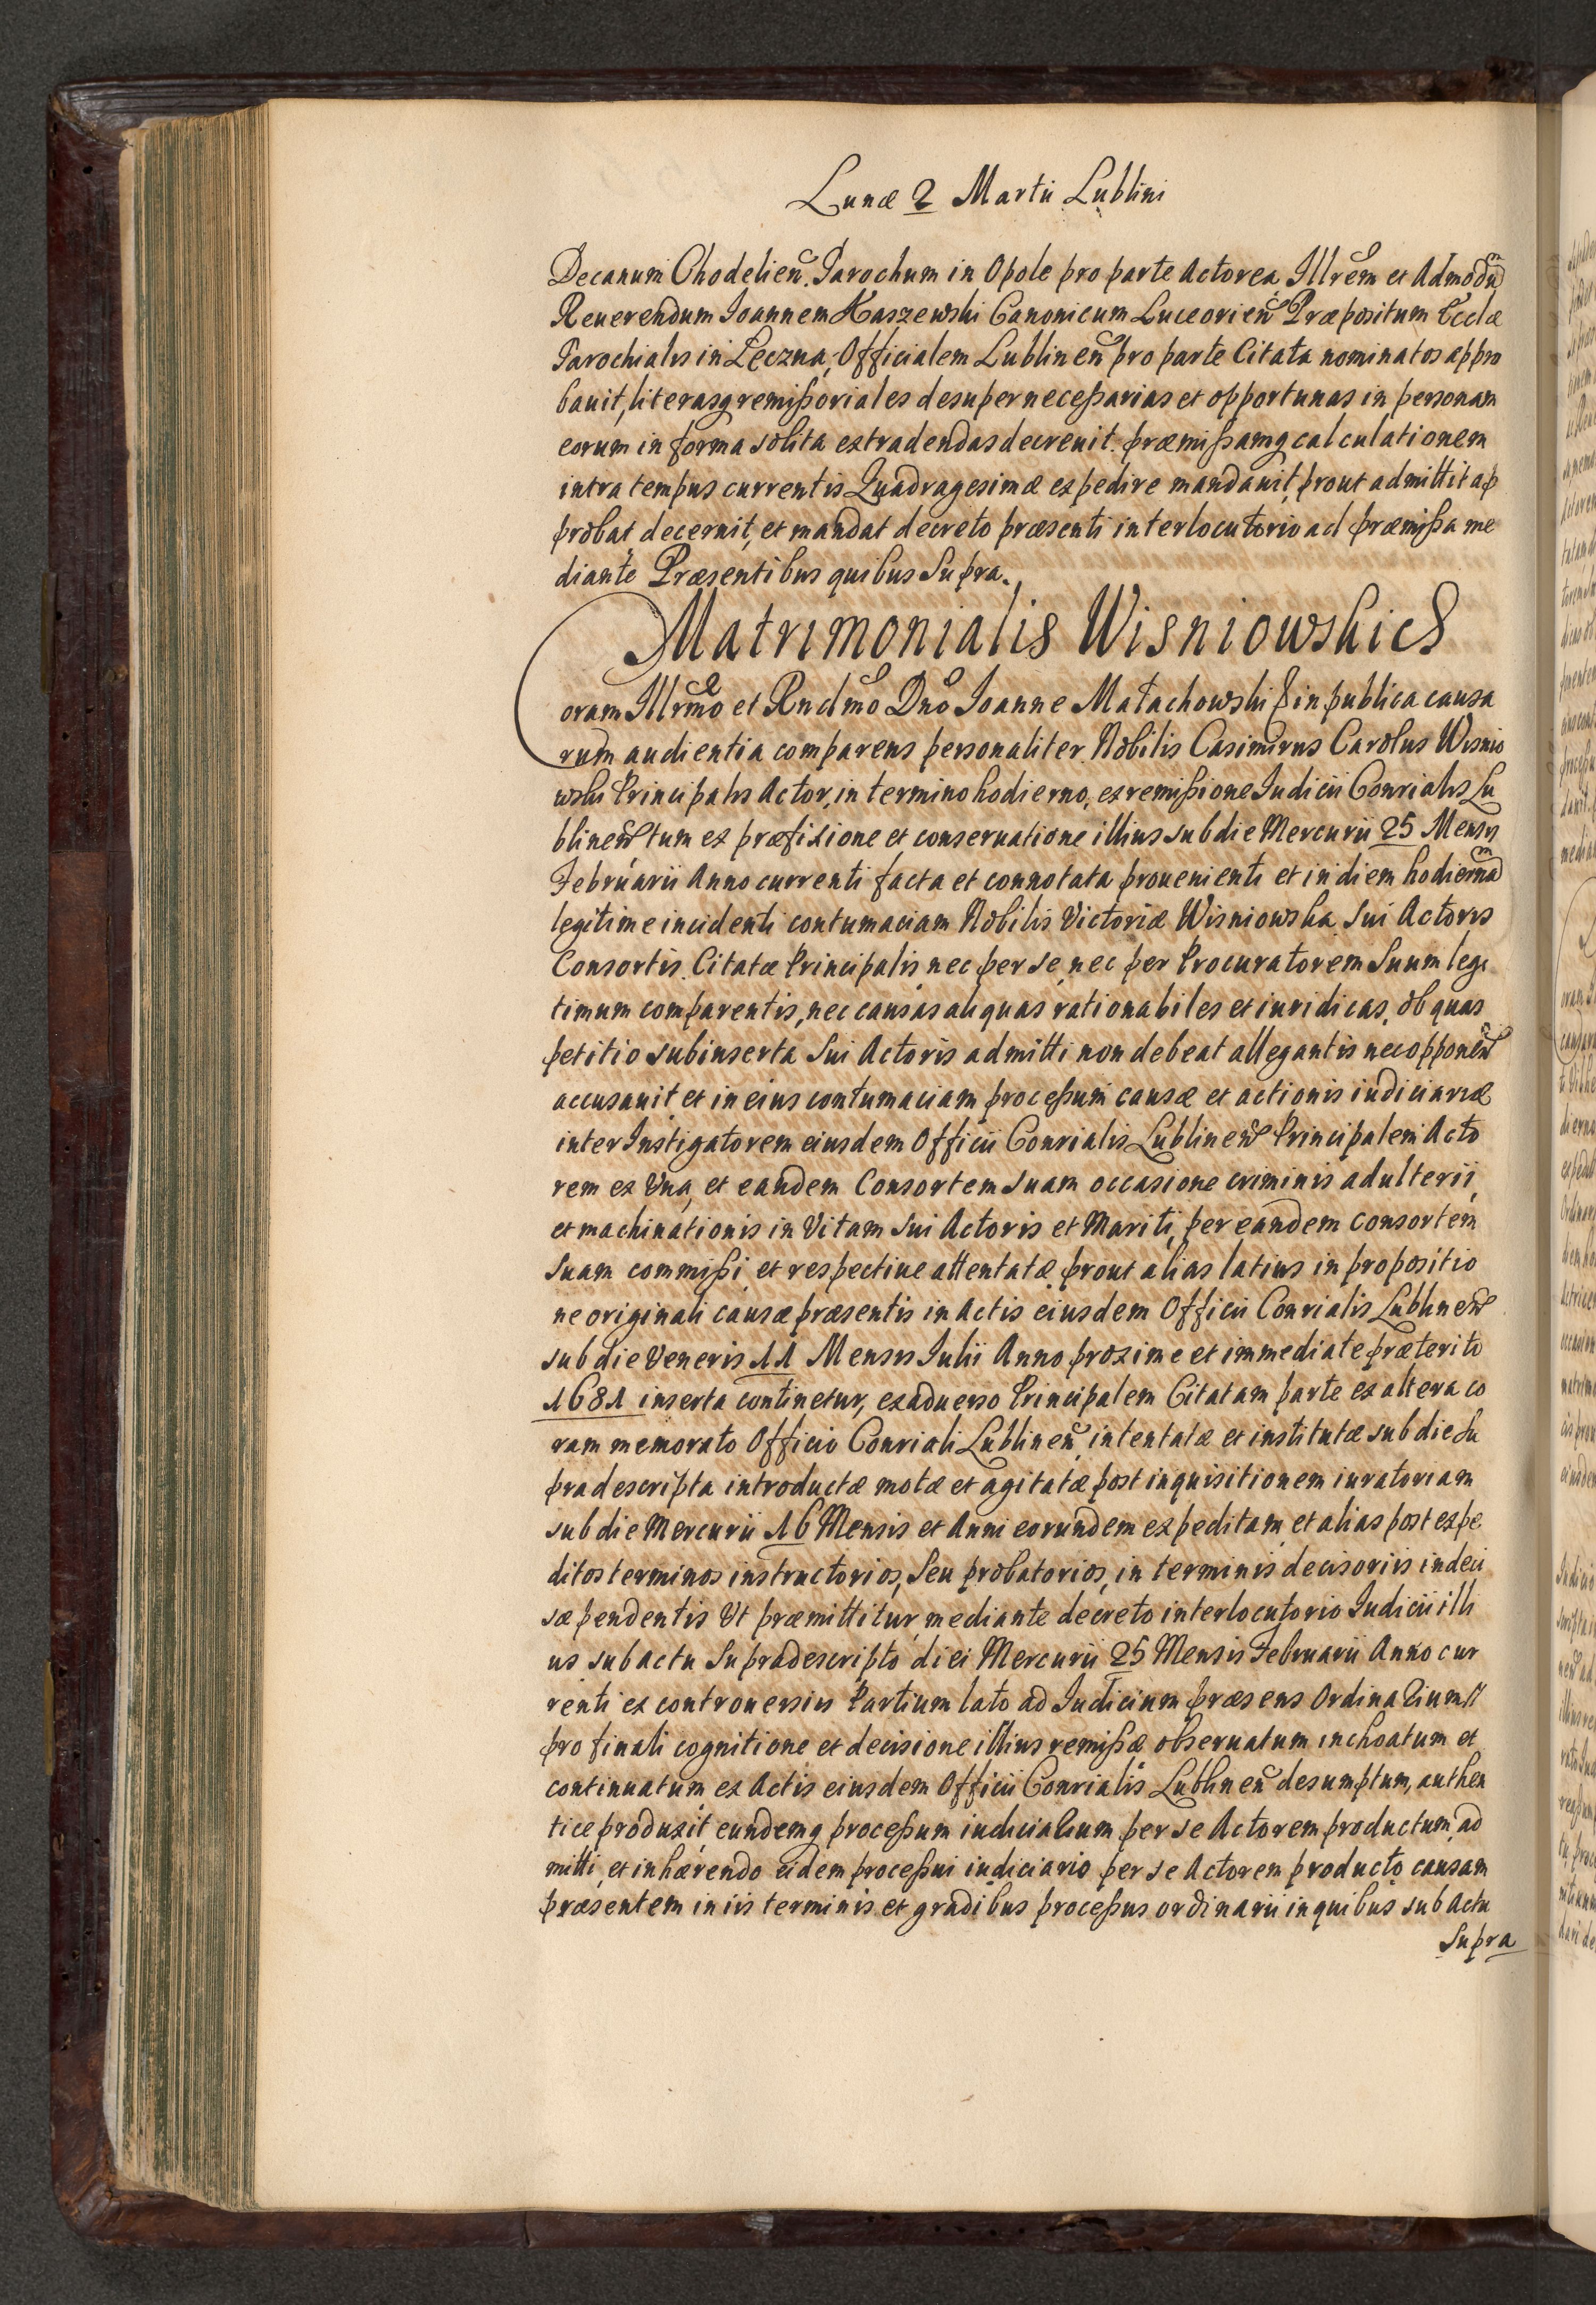 Lunæ 2 Martii Lublini
Decanum Chodelien̄. Parochum in Opole pro parte Actorea, Illrem et Admodū
Reuerendum Ioannem Kaszewski Canonicum Luceorien̄ Præpositum Ecclæ
Parochialis in Łeczna, Officialem Lublinen̄ pro parte Citata nominatos appro
bauit, literasq remißoriales desuper neceßarias et opportunas in personam
eorum in forma solita extradendas decreuit. præmißamq calculationem
intra tempus currentis Quadragesimæ expedire mandauit, prout admittit ap
probat decernit, et mandat decreto præsenti interlocutorio ad præmißa me
diante Præsentibus quibus Supra.
Matrimonialis Wisniowskic
Coram Illrmo et Rndmo Dno Ioanne Małachowski in publica causa
rum audientia comparens personaliter Nobilis Casimirus Carolus Wisnio
wski Principalis Actor, in termino hodierno, ex remißione Iudicii Conrialis Lu
blinen̄ tum ex præfixione et conseruatione illius sub die Mercurii 25 Mensis
Februarii Anno currenti facta et connotata prouenienti et in diem hodiernā
legitime incidenti contumaciam Nobilis Victoriæ Wisniowska Sui Actoris
Consortis Citatæ Principalis nec per se, nec per Procuratorem Suum legi
timum comparentis, nec causas aliquas rationabiles et iuridicas, ob quas
petitio subinserta Sui Actoris admitti non debeat allegantis nec opponen̄
accusauit et in eius contumaciam proceßum causæ et actionis iudiciariæ
inter Instigatorem eiusdem Officii Conrialis Lublinen̄ Principalem Acto
rem ex Vna, et eandem Consortem Suam occasione criminis adulterii,
et machinationis in Vitam Sui Actoris et Mariti, per eandem consortem
Suam commißi et respectiue attentatæ prout alias latius in propositio
ne originali causæ præsentis in Actis eiusdem Officii Conrialis Lublinen̄
sub die Veneris 11 Mensis Iulii Anno proxime et immediate præterito
1681 inserta continetur, ex aduerso Principalem Citatam parte ex altera co
ram memorato Officio Conriali Lublinen̄ intentatæ et institutæ sub die Su
pradescripta introductæ motæ et agitatæ post inquisitionem iuratoriam
sub die Mercurii 16 Mensis et Anni eorundem expeditam et alias post expe
ditos terminos instructorios, Seu probatorios, in terminis decisoriis indeci
sæ pendentis Vt præmittitur mediante decreto interlocutorio Iudicii illi
us sub actu Supradescripto diei Mercurii 25 Mensis Februarii Anno cur
renti ex controuersiis Partium lato ad Iudicium præsens Ordinarium
pro finali cognitione et decisione illius remißæ obseruatum inchoatum et
continuatum ex Actis eiusdem Officii Conrialis Lublinen̄ desumptum, authen
tice produxit, eundemq proceßum iudiciarium per se Actorem productum, ad
mitti, et inhærendo eidem proceßui iudiciario per se Actorem producto causam
præsentem in iis terminis et gradibus proceßus ordinarii in quibus sub Actu
Supra